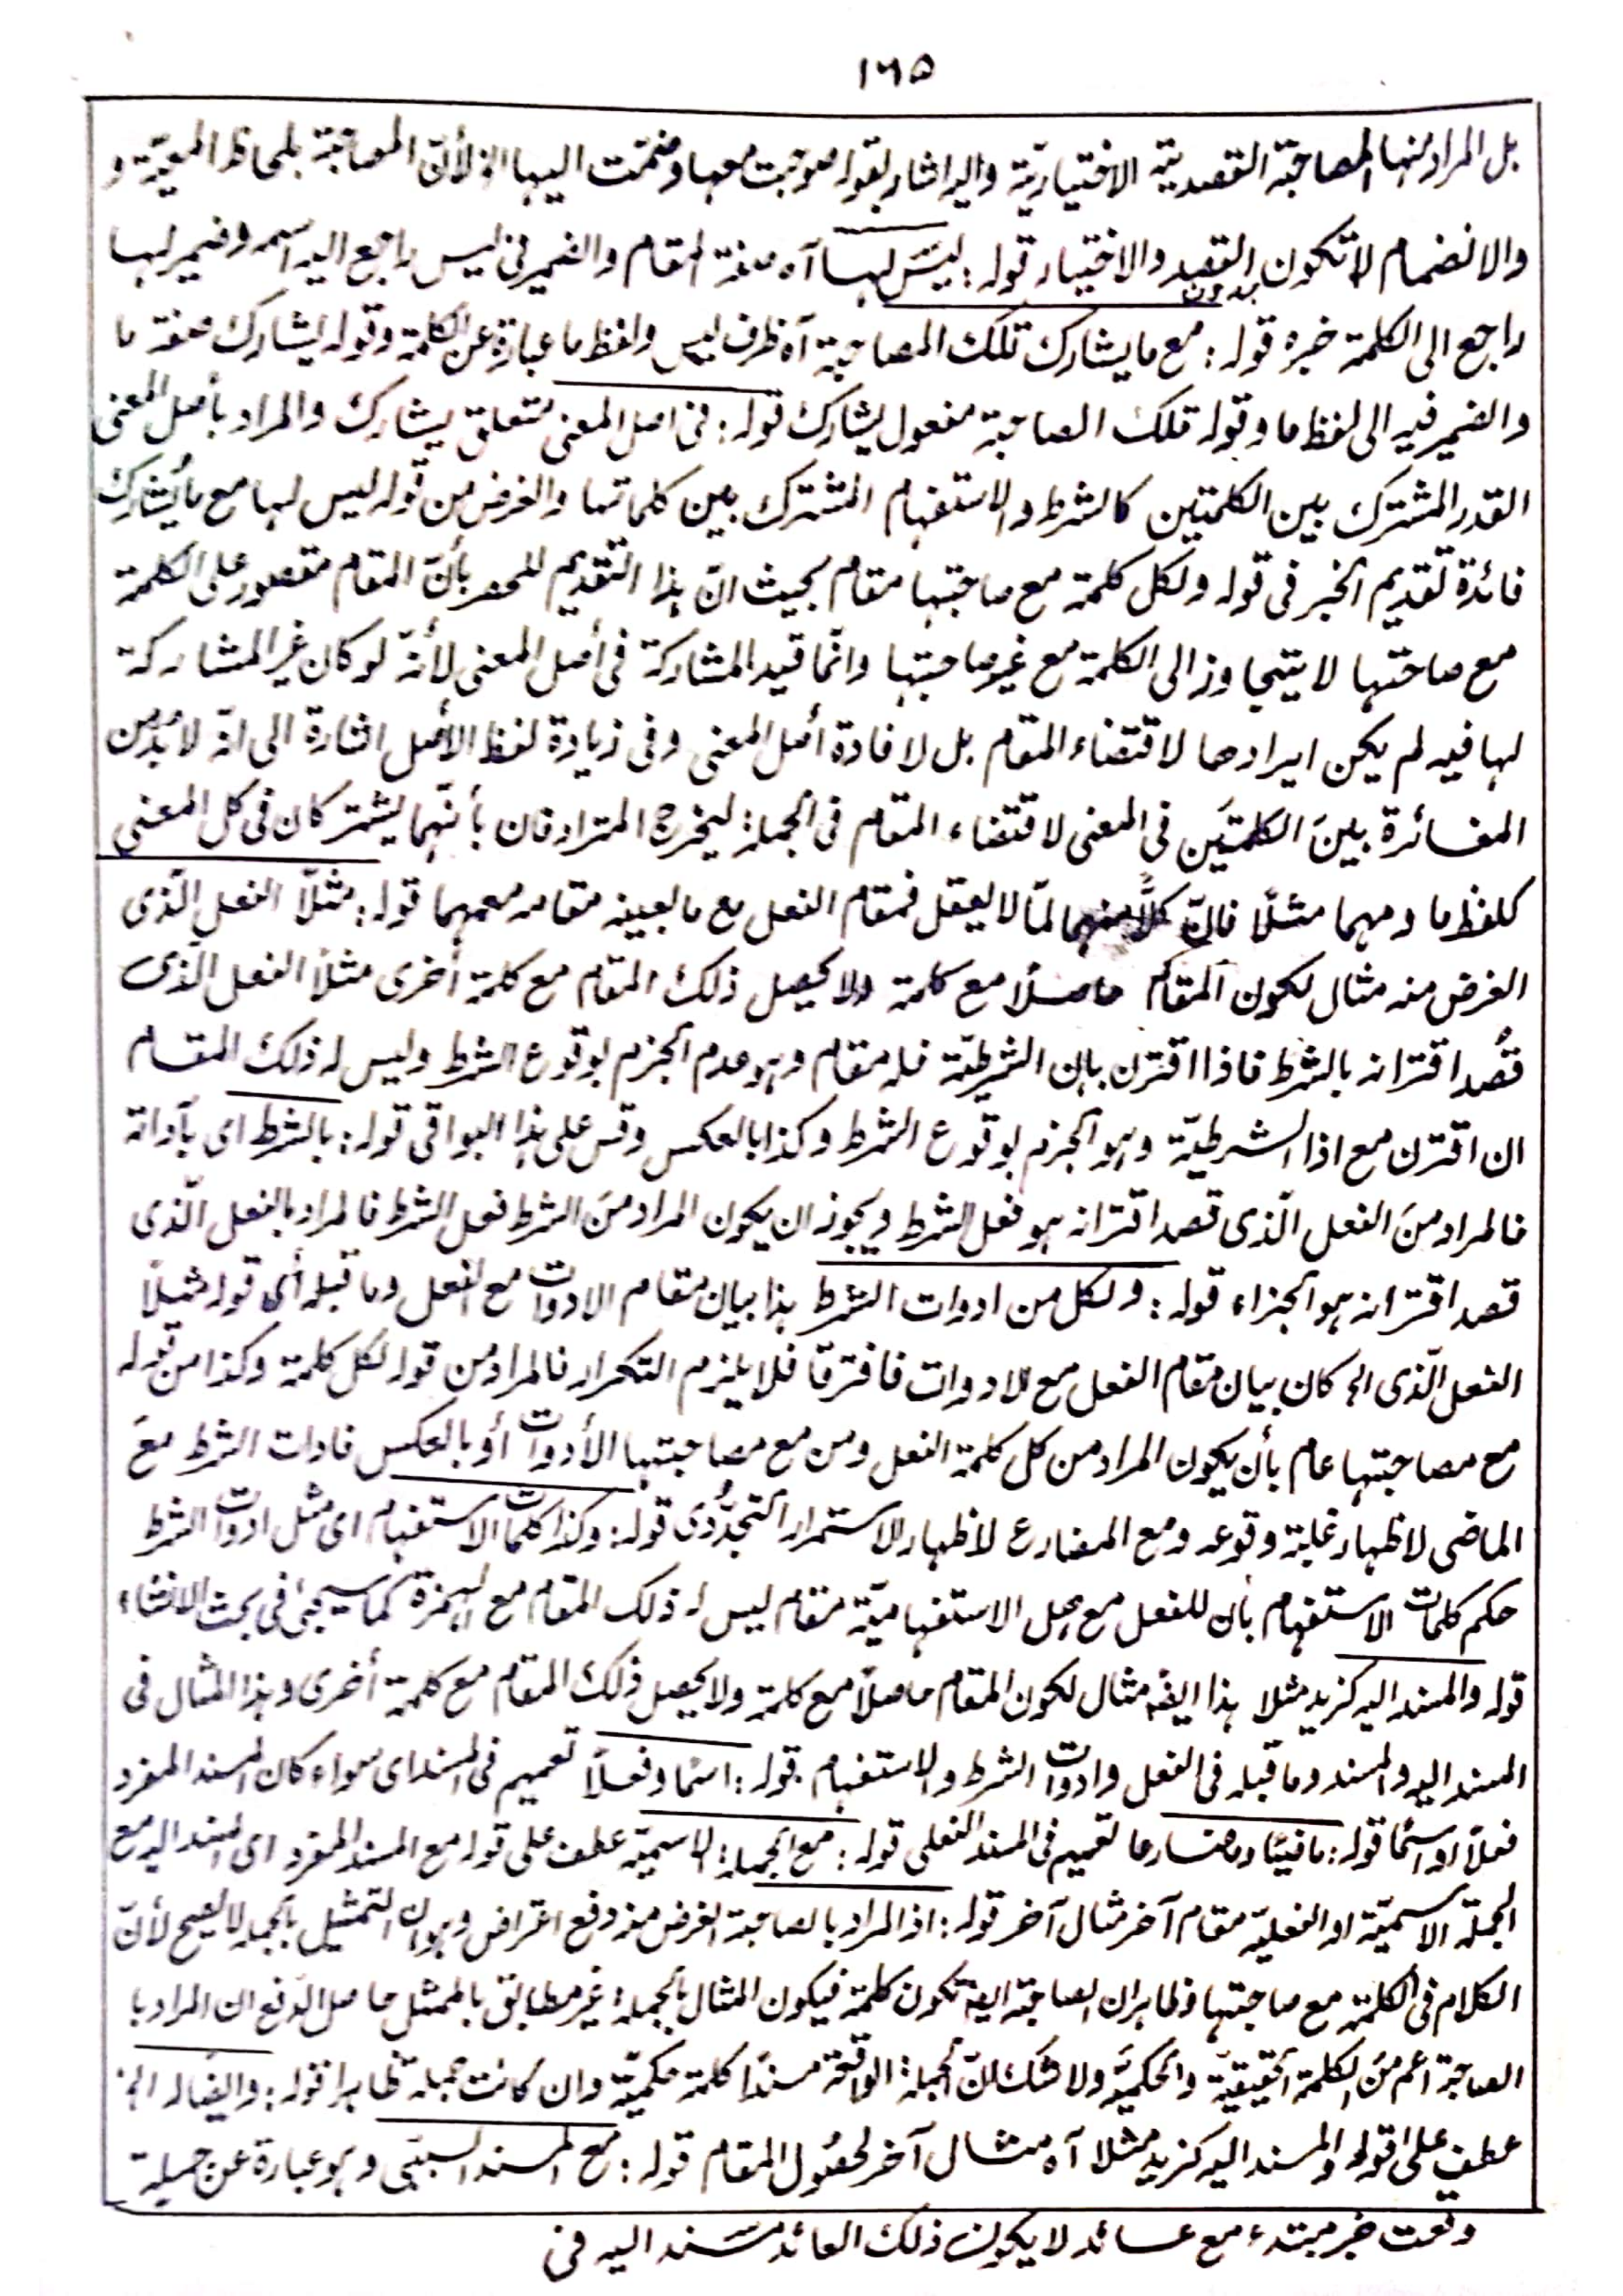 ١٦٥
بل المراد منها المصاحبة القصدية الاختيارية واليه اشار بقوله صوحبت معها وضمت اليها الخ لأنّ المصاحبة بلحاظ المعيّة و
والانضمام لا تكون بدون القصد والاختيار قوله : ليس لها آه صفة المقام والضمير فى ليس راجع اليه اسمه وضمير لها
راجع الى الكلمة خبره قوله : مع ما يشارك تلك المصاحبة آه ظرف ليس ولفظ ما عبارة عن الكلمة وقوله يشارك صفة ما
والضمير فيه الى لفظ ما وقوله تلك الصاحبة مفعول يشارك قوله : فى اصل المعنى متعلق يشارك والمراد بأصل المعنى
القدر المشترك بين الكلمتين كالشرط والاستفهام المشترك بين كلماتها والغرض من قوله ليس لها مع ما يُشارك
فائدة تقديم الخبر فى قوله ولكل كلمة مع صاحبتها مقام بحيث انّ هذا التقديم للحصر بأنّ المقام مقصور على الكلمة
مع صاحتها لا يتجاوز الى الكلمة مع غير صاحبتها وانّما قيد المشاركة فى أصل المعنى لأنّه لو كان غير المشاركة
لها فيه لم يكن ايرادها لاقتضاء المقام بل لافادة أصل المعنى وفى زيادة لفظ الأصل اشارة الى انّه لا بدّ من
المغائرة بينَ الكلمتَين فى المعنى لاقتضاء المقام فى الجملة ليخرج المترادفان بأنّهما يشتركان فى كل المعنى
كلفظ ما ومهما مثلًا فانّ كلًّا منهما لمّا لا يعقل فمقام الفعل مع ما بعينه مقامه معمهما قوله : مثلًا الفعل الّذى
الغرض منه مثال لكون المقام حاصلًا مع كلمة ولا يحصل ذلك المقام مع كلمة أخرى مثلًا الفعل الّذى
قُصد اقترانه بالشرط فاذا اقترن بإن الشرطيّة فله مقام وهو عدم الجزم بوقوع الشرط وليس له ذلك المقام
ان اقترن مع اذا الشرطيّة وهو الجزم بوقوع الشرط وكذا بالعكس وقس على هذا البواقى قوله : بالشرط اى بأداته
فالمراد منَ الفعل الّذى قصد اقترانه هو فعل الشرط ويجوز ان يكون المراد منَ الشرط فعل الشرط فالمراد بالفعل الّذى
قصد اقترانه هو الجزاء قوله : ولكل من ادوات الشرط هذا بيان مقام الادوات مع الفعل وما قبله أى قوله مثلًا
الفعل الّذى الخ كان بيان مقام الفعل مع الادوات فافترقا فلا يلزم التكرار فالمراد من قوله لكل كلمة وكذا من قوله
مع مصاحبتها عام بأن يكون المراد من كل كلمة الفعل ومن مع مصاحبتها الأدوات أو بالعكس فادات الشرط معَ
الماضى لاظهار غلبة وقوعه ومع المضارع لاظهار الاستمرار التجدُّدى قوله : وكذا كلمات الاستفهام اى مثل ادوات الشرط
حكم كلمات الاستفهام بأن للفعل مع هل الاستفهاميّة مقام ليس له ذلك المقام مع الهمزة كما سيجئ فى بحث الانشاء
قوله والمسند اليه كزيد مثلا هذا ايضًا مثال لكون المقام حاصلًا مع كلمة ولا يحصل ذلك المقام مع كلمة أخرى وهذا المثال فى
المسند اليه والمسند وما قبله فى الفعل وادوات الشرط والاستفهام قوله : اسمًا وفعلًا تعميم فى المسند اى سواء كان المسند المفرد
فعلًا او اسمًا قوله : ماضيًا ومضارعا تعميم فى المسند الفعلى قوله : مع الجملة الاسميّة عطف على قوله مع المسند المفرد اى المسند اليه مع
الجملة الاسميّة او الفعليّة مقام آخر مثال آخر قوله : اذ المراد بالصاحبة الغرض منه دفع اعتراض وهو ان التمثيل بالجملة لا يصح لأنّ
الكلام فى الكلمة مع صاحبتها وظاهر ان الصاحبة ايضا تكون كلمة فيكون المثال بالجملة غير مطابق بالممثل حاصل الدّفع ان المراد با
الصاحبة اعم منَ الكلمة الحقيقيّة والحكميَّة ولا شك انّ الجملة الواقعة مسندًا كلمة حكميّة وان كانت جملة ظاهرا قوله : وايضًا له الخ
عطف على قوله والمسند اليه كزيد مثلا آه مثال آخر لحصُول المقام قوله : مع المسند السببّى وهو عبارة عن جملة
وقعت خبر مبتدء مع عائد لا يكون ذلك العائد مسند اليه فى